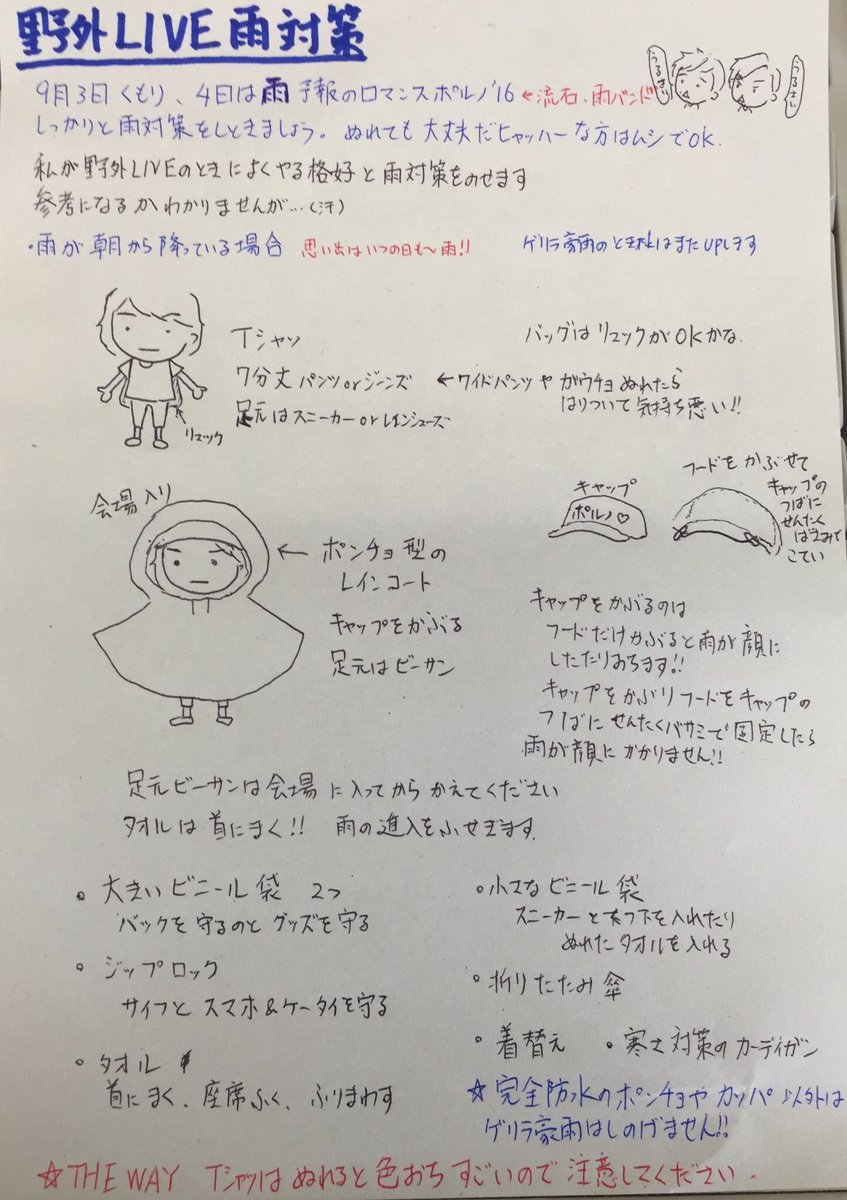 野外LIVE雨対策
9月3日くもり、4日は雨予報のロマンスポルノ'16 ←流石、雨バンド
うるさい
うるさい
しっかりと雨対策をしときましょう。ぬれても大丈夫だヒャッハーな方はムシでOK.
私が野外LIVEのときによくやる格好と雨対策をのせます
参考になるかわかりませんが…(汗)
・雨が朝から降っている場合 思い出はいつの日も〜雨!!
ゲリラ豪雨のときはまたupします
Tシャツ
7分丈パンツorジーンズ ←ワイドパンツやガウチョぬれたら
はりついて気持ち悪い!!
足元はスニーカーorレインシューズ
リュック
バッグはリュックがOKかな.
会場入り
←ポンチョ型の
レインコート
キャップをかぶる
足元はビーサン
キャップ
ポルノ♡
フードをかぶせて
キャップの
つばに
せんたく
ばさみで
こてい
キャップをかぶるのは
フードだけかぶると雨が顔に
したたりおちます!!
キャップをかぶりフードをキャップの
つばにせんたくバサミで固定したら
雨が顔にかかりません!!
足元ビーサンは会場に入ってからかえてください
タオルは首にまく!! 雨の進入をふせぎます.
・大きいビニール袋 2つ
バックを守るのとグッズを守る
・ジップロック
サイフとスマホ&ケータイを守る
・タオル
首にまく、座席ふく、ふりまわす
・小さなビニール袋
スニーカーとくつ下を入れたり
ぬれたタオルを入れる
・折りたたみ傘
・着替え ・寒さ対策のカーディガン
☆完全防水のポンチョやカッパ以外は
ゲリラ豪雨はしのげません!!
☆THE WAY Tシャツはぬれると色おちすごいので注意してください.